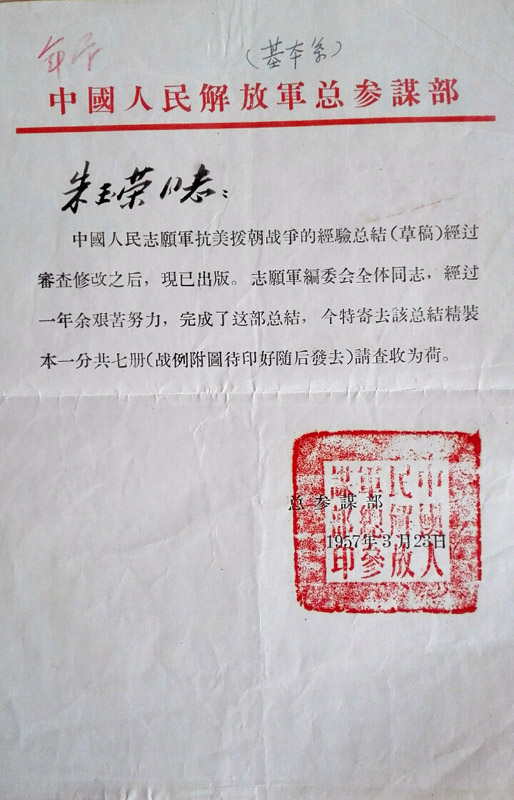 (基本系)
中國人民解放軍总参謀部
朱玉荣同志：
中國人民志願軍抗美援朝战爭的經驗总結(草稿)經过
審查修改之后，現已出版。志願軍編委会全体同志，經过
一年余艰苦努力，完成了这部总結，今特寄去該总結精裝
本一分共七册(战例附圖待印好随后發去)請查收为荷。
总参謀部
1957年3月23日
中國人
民解放
軍總參
謀部印